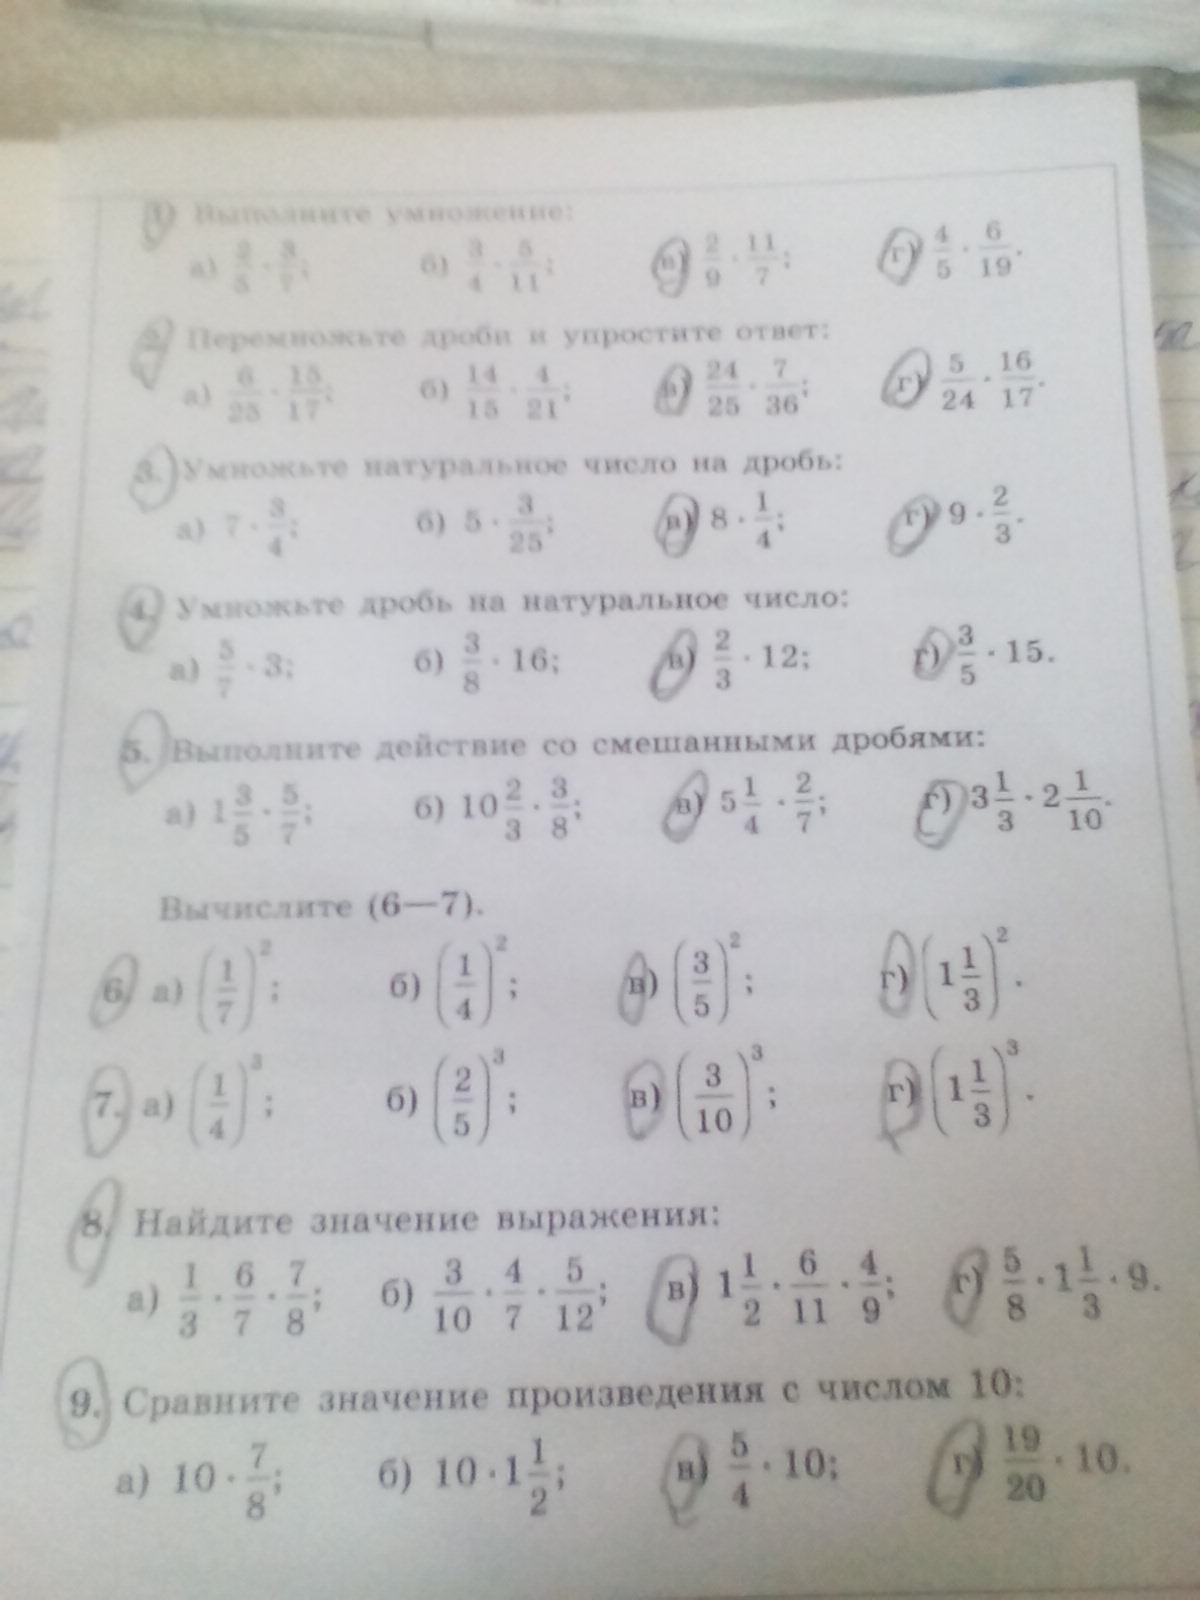 1. Выполните умножение:
а) 2/5 · 3/7; б) 3/4 · 5/11; в) 2/9 · 11/7; г) 4/5 · 6/19.
2. Перемножьте дроби и упростите ответ:
а) 6/25 · 15/17; б) 14/15 · 4/21; в) 24/25 · 7/36; г) 5/24 · 16/17.
3. Умножьте натуральное число на дробь:
а) 7 · 3/4; б) 5 · 3/25; в) 8 · 1/4; г) 9 · 2/3.
4. Умножьте дробь на натуральное число:
а) 5/7 · 3; б) 3/8 · 16; в) 2/3 · 12; г) 3/5 · 15.
5. Выполните действие со смешанными дробями:
а) 1 3/5 · 5/7; б) 10 2/3 · 3/8; в) 5 1/4 · 2/7; г) 3 1/3 · 2 1/10.
Вычислите (6—7).
6. а) (1/7)²; б) (1/4)²; в) (3/5)²; г) (1 1/3)².
7. а) (1/4)³; б) (2/5)³; в) (3/10)³; г) (1 1/3)³.
8. Найдите значение выражения:
а) 1/3 · 6/7 · 7/8; б) 3/10 · 4/7 · 5/12; в) 1 1/2 · 6/11 · 4/9; г) 5/8 · 1 1/3 · 9.
9. Сравните значение произведения с числом 10:
а) 10 · 7/8; б) 10 · 1 1/2; в) 5/4 · 10; г) 19/20 · 10.